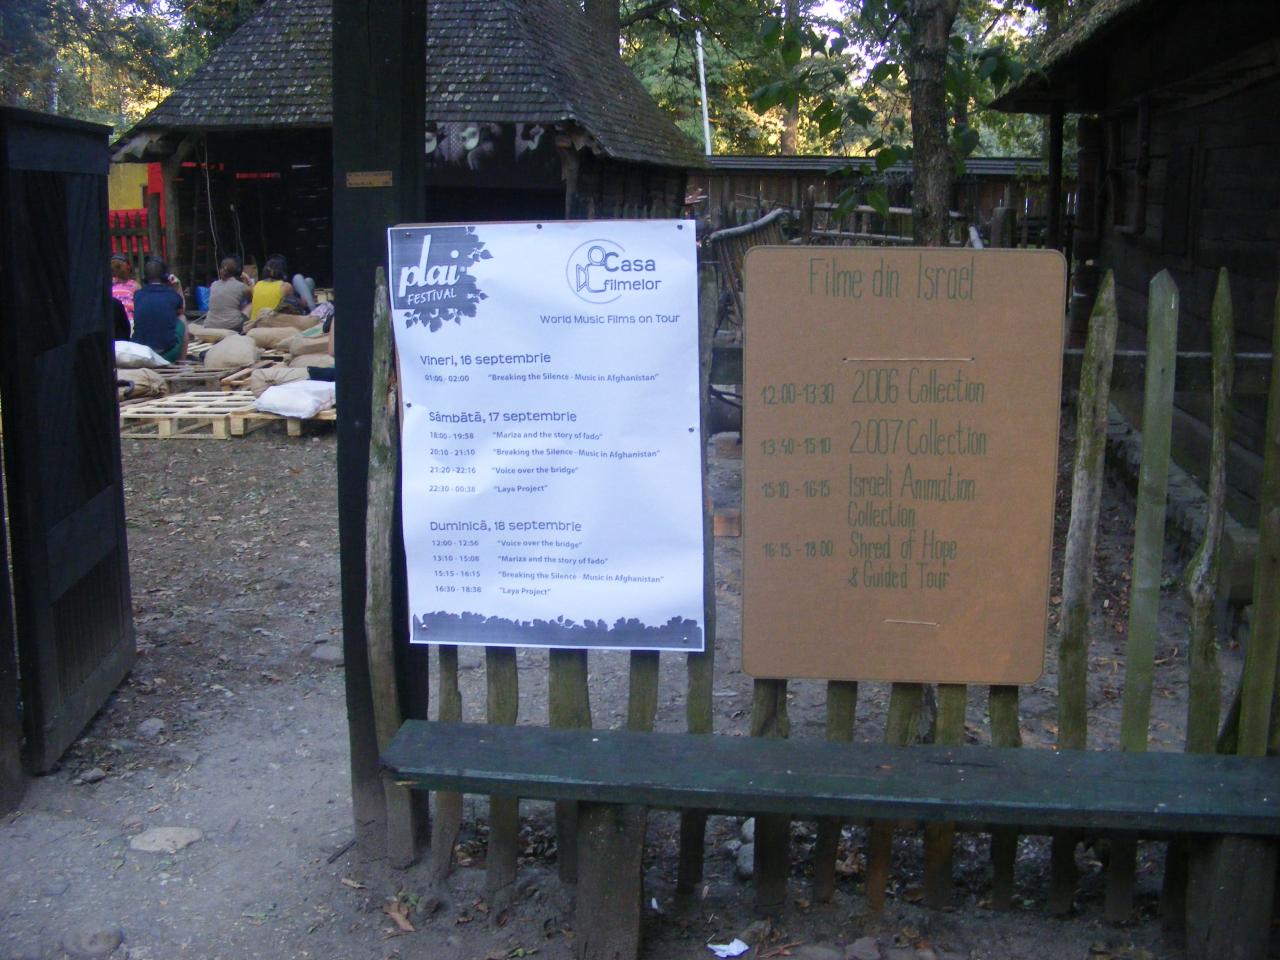 plai
FESTIVAL
Casa
filmelor
World Music Films on Tour
Vineri, 16 septembrie
01:00 - 02:00 "Breaking the Silence - Music in Afghanistan"
Sâmbătă, 17 septembrie
18:00 - 19:58 "Mariza and the story of fado"
20:10 - 21:10 "Breaking the Silence - Music in Afghanistan"
21:20 - 22:16 "Voice over the bridge"
22:30 - 00:38 "Laya Project"
Duminică, 18 septembrie
12:00 - 12:56 "Voice over the bridge"
13:10 - 15:08 "Mariza and the story of fado"
15:15 - 16:15 "Breaking the Silence - Music in Afghanistan"
16:30 - 18:38 "Laya Project"
Filme din Israel
12:00-13:30 2006 Collection
13:40-15:10 2007 Collection
15:10 - 16:15 Israeli Animation
Collection
16:15 - 18:00 Shred of Hope
& Guided Tour